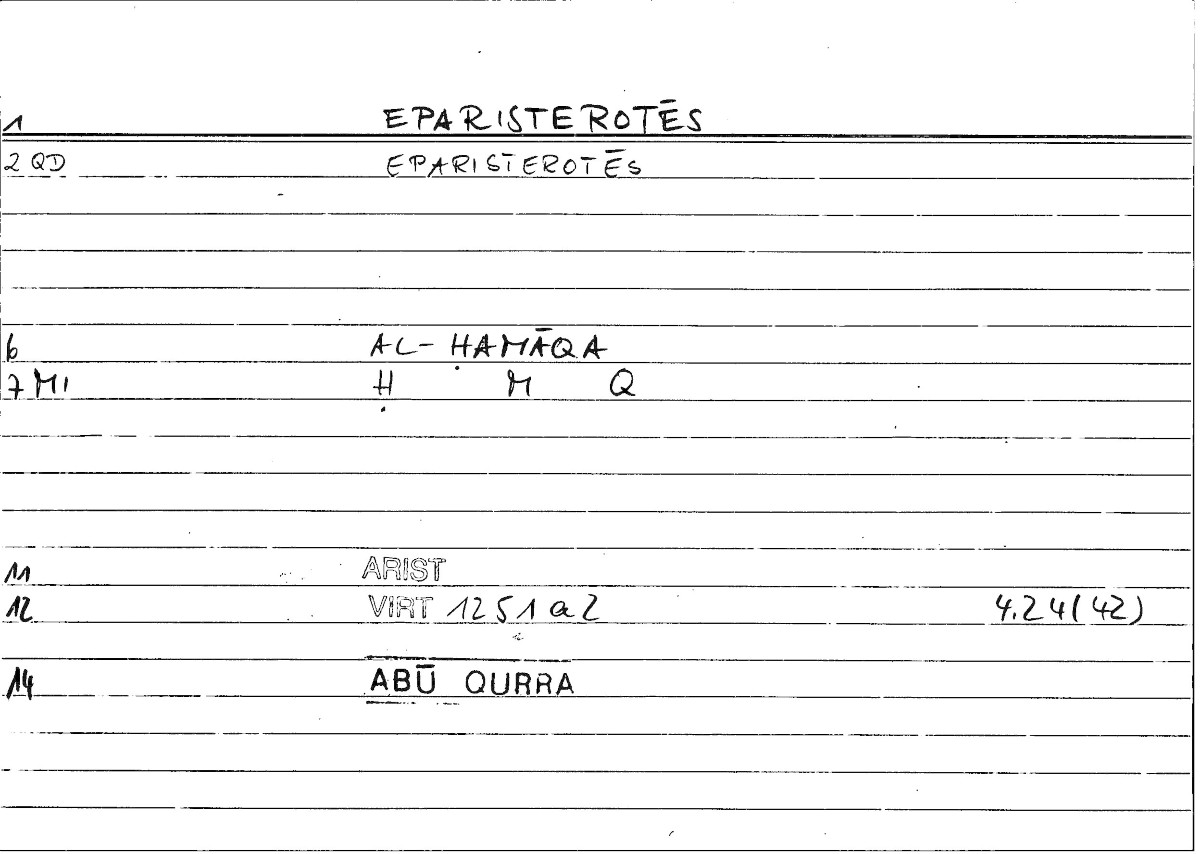 1 EPARISTEROTĒS
2 QD EPARISTEROTĒS
6 AL-ḤAMĀQA
7 MI Ḥ M Q
11 ARIST
12 VIRT 1251a2 4.24(42)
14 ABŪ QURRA